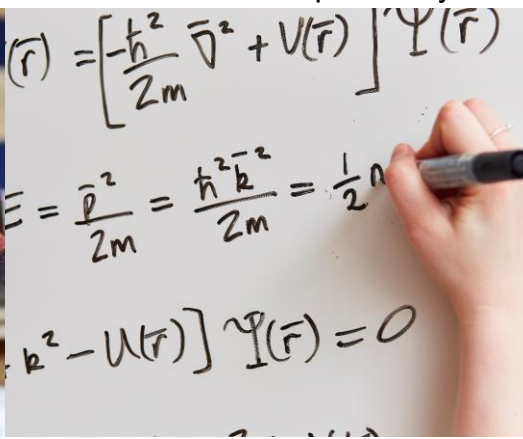 (r̄) = [-ħ²/2m ∇̄² + V(r̄)] Ψ(r̄)
E = p̄²/2m = ħ²k̄²/2m = 1/2 m
k² - U(r̄)] Ψ(r̄) = 0